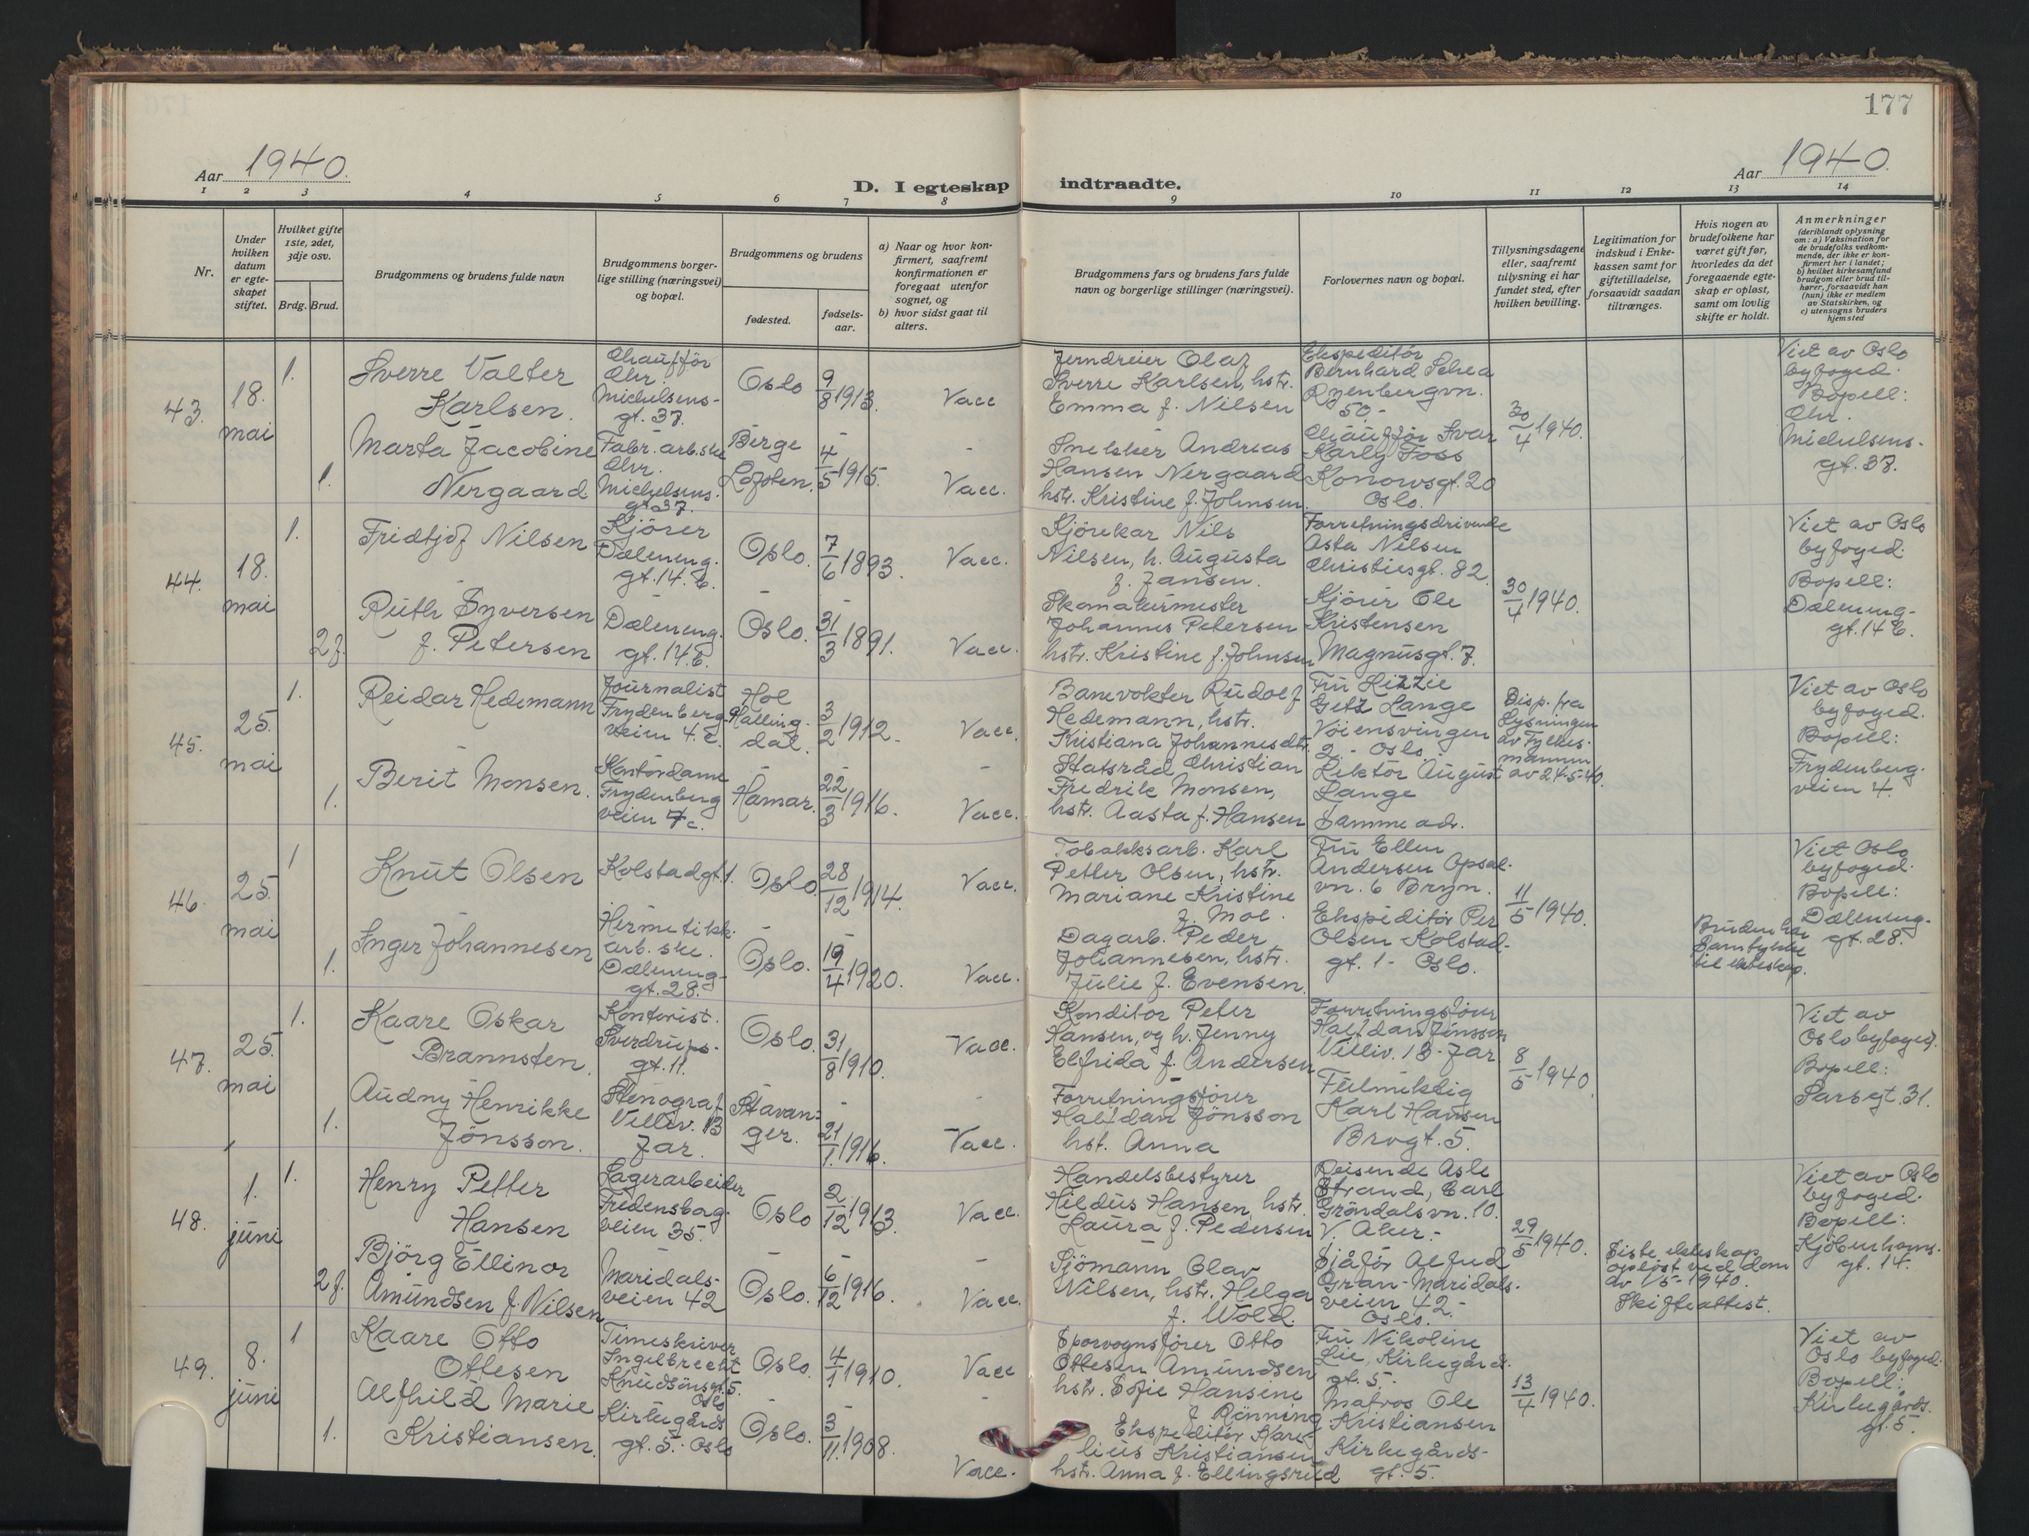 177
Aar 1940.
D. I egteskap indtraadte.
Aar 1940.
1 2 3 4 5 6 7 8 9 10 11 12 13 14
Nr.
Under hvilken datum er egteskapet stiftet.
Hvilket gifte 1ste, 2det, 3dje osv.
Brdg. Brud.
Brudgommens og brudens fulde navn
Brudgommens borgerlige stilling (næringsvei) og bopæl.
Brudgommens og brudens
fødested.
fødselsaar.
a) Naar og hvor konfirmert, saafremt konfirmationen er foregaat utenfor sognet, og
b) hvor sidst gaat til alters.
Brudgommens fars og brudens fars fulde navn og borgerlige stillinger (næringsvei).
Forlovernes navn og bopæl.
Tillysningsdagene eller, saafremt tillysning ei har fundet sted, efter hvilken bevilling.
Legitimation for indskud i Enkekassen samt for giftetilladelse, forsaavidt saadan tiltrænges.
Hvis nogen av brudefolkene har været gift før, hvorledes da det foregaaende egteskap er opløst, samt om lovlig skifte er holdt.
Anmerkninger (deriblandt oplysning om: a) Vaksination for de brudefolks vedkommende, der ikke er konfirmert her i landet; b) hvilket kirkesamfund brudgom eller brud tilhører, forsaavidt han (hun) ikke er medlem av Statskirken, og c) utensogns bruders hjemsted
43.
18. mai
1.
Sverre Valter
Karlsen.
Chauffør
Chr.
Michelsens-
gt. 37.
Oslo
9/8 1913.
Vacc
Jerndreier Olaf
Sverre Karlsen, hstr.
Emma f. Nilsen
Ekspeditør
Bernhard Schea
Ryenbergvn.
50.-
30/4 1940.
Viet av Oslo
byfoged.
Bopell:
Chr.
Michelsens-
gt. 37.
1.
Marta Jacobine
Nergaard
Fabr. arb.ske
Chr.
Michelsens.
gt 37.
Berge
Lofoten.
4/5 1915.
Vacc.
Snekker Andreas
Hansen Nergaard
hstr. Kristine f. Johnsen
Chauffør Ivar
Karly Foss
Konowsgt. 20
Oslo.
44.
18. mai
1.
Fridtjof Nilsen
Kjører
Dæleneng.
gt. 14. E.
Oslo.
7/6 1893.
Vacc.
Kjørekar Nils
Nilsen, h. Augusta
f. Jansen.
Forretningsdrivende
Asta Nilsen
Christiesgt. 82.
30/4 1940.
Viet av Oslo
byfoged.
Bopell:
Dæleneng-
gt. 14 E.
2 f.
Ruth Syversen
f. Petersen
Dæleneng.
gt. 14. E.
Oslo.
31/3 1891.
Vacc.
Skomakermester
Johannes Petersen
hstr. Kristine f. Johnsen
Kjører Ole
Kristensen
Magnusgt. 7.
45.
25. mai
1.
Reidar Hedemann
Journalist
Frydenberg-
veien 4. c.
Hol
Halling-
dal.
3/2 1912.
Vacc.
Banevokter Rudolf
Hedemann, hstr.
Kristiana Johannesdtr.
Fru Lizzie
Getz Lange
Vøiensvingen
2 - Oslo.
Disp. fra
Lysningen
av Fylkes-
mannen
av 24-5-40.
Viet av Oslo
byfoged.
Bopell:
Frydenberg-
veien 4.
1.
Berit Monsen.
Kontordame
Frydenberg
veien 4 c.
Hamar.
22/3 1916.
Vacc.
Statsråd Christian
Fredrik Monsen,
hstr. Aasta f. Hansen
Lektor August
Lange
Samme adr.
46.
25. mai
1
Knut Olsen
Kolstadgt. 1.
Oslo.
28/12 1914.
Vacc.
Tobakksarb. Karl
Petter Olsen, hstr.
Mariane Kristine
f. Moe.
Fru Ellen
Andersen Opsal-
vn. 6 Bryn.
11/5 1940.
Viet Oslo
byfoged.
Bopell:
Dæleneng-
gt. 28.
1.
Inger Johannesen
Hermetikk.
arb. ske.
Dæleneng-
gt. 28.
Oslo.
19/4 1920.
Vacc.
Dagarb. Peder
Johannesen, hstr.
Julie f. Evensen.
Ekspeditør Per
Olsen Kolstad-
gt. 1 - Oslo.
Bruden har
Samtykke
til ekteskap.
47.
25. mai
1.
Kaare Oskar
Brannsten.
Kontorist.
Sverdrups-
gt. 11.
Oslo.
31/8 1910.
Vacc.
Konditor Peter
Hansen, og h. Jenny
Elfrida f. Andersen
Forretningsfører
Halfdan Jönsson
Velliv. 13 - Jar
8/5 1940
Viet av
Oslo byfoged.
Bopell:
Parsgt. 31.
1.
Audny Henrikke
Jönsson.
Stenograf
Velliv. 13
Jar.
Stavan-
ger.
21/1. 1916.
Vacc.
Forretningsfører
Halfdan Jönsson
hst. Anna
Fulmektig
Karl Hansen
Brogt. 5.
48.
1. juni
1.
Henry Petter
Hansen
Lagerarbeider
Fredensborg-
veien 35.
Oslo
2/12 1913.
Vacc.
Handelsbestyrer
Hildus Hansen, hstr.
Laura f. Pedersen
Reisende Asle
Strand, Carl
Gröndalsvn. 10.
V. Aker.-
29/5 1940.
Viet av Oslo
byfoged.
Bopell:
Kjøbenhavns.
gt. 14.
2 f.
Björg Ellinor
Amundsen f. Nilsen
Maridals-
veien 42
Oslo.
6/12 1916.
Vacc.
Sjömann Olav
Nilsen, hstr. Helga
f. Wold.
Sjåfør Alfred
Gran - Maridals-
veien 42 -
Oslo.
Siste ekteskap
opløst ved dom
av 1/5 - 1940.
Skifteattest.
49.
8. juni
1
Kaare Otto
Ottesen
Timeskriver
Ingelbrecht
Knudsönsgt. 5.
Oslo
Oslo.
4/1 1910.
Vacc
Sporvognsfører Otto
Ottesen Amundsen
hstr. Sofie Hansine
f. Rønning
Fru Nikoline
Lie, Kirkegårds.
gt. 5.-
13/4 1940.
Viet av
Oslo byfoged.
Bopell:
Kirkegårds.
gt. 5.
1.
Alfhild Marie
Kristiansen.
Kirkegårds
gt. 5. - Oslo
Oslo.
3/11. 1908.
Vacc.
Ekspeditør Kare-
lius Kristiansen
hstr. Anna f. Ellingsrud
Matros Ole
Kristiansen
Kirkegårds-
gt. 5.